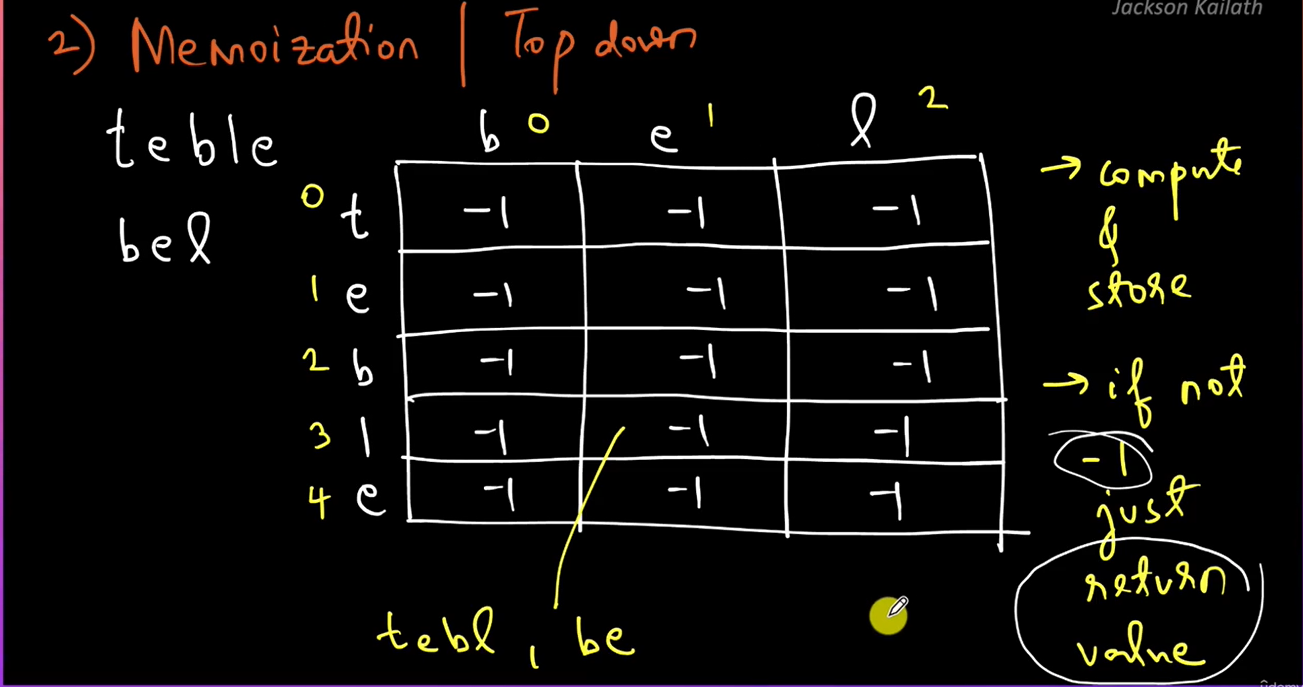 Jackson Kailath
2) Memoization | Top down
teble
bel
b 0 e 1 l 2
0 t -1 -1 -1
1 e -1 -1 -1
2 b -1 -1 -1
3 l -1 -1 -1
4 e -1 -1 -1
→ compute
&
store
→ if not
-1
just
return
value
tebl, be
ûdemy